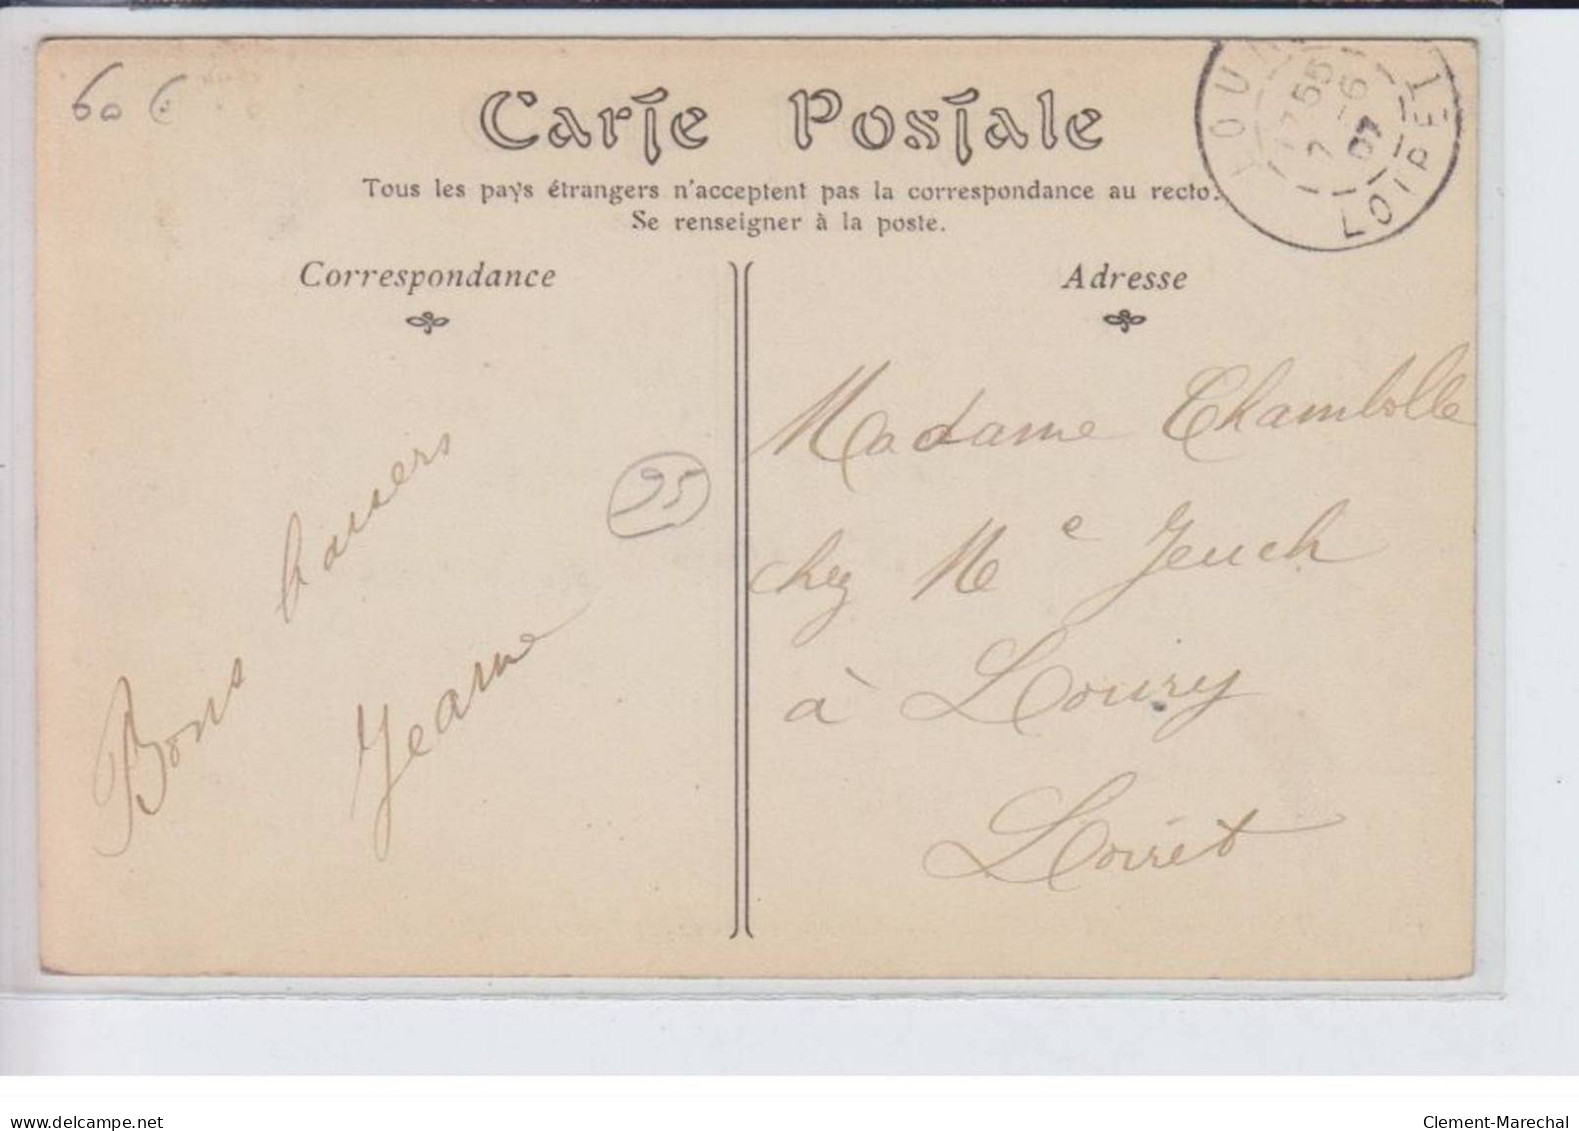 60 €
Carte Postale
Tous les pays étrangers n'acceptent pas la correspondance au recto.
Se renseigner à la poste.
Correspondance
Adresse
LOU
17 55
7 -6
07
LOIRET
Bons baisers
Jeanne
95
Madame Chambolle
chez Me Jeuch
à Loury
Loiret
delcampe.net
Clement-Marechal